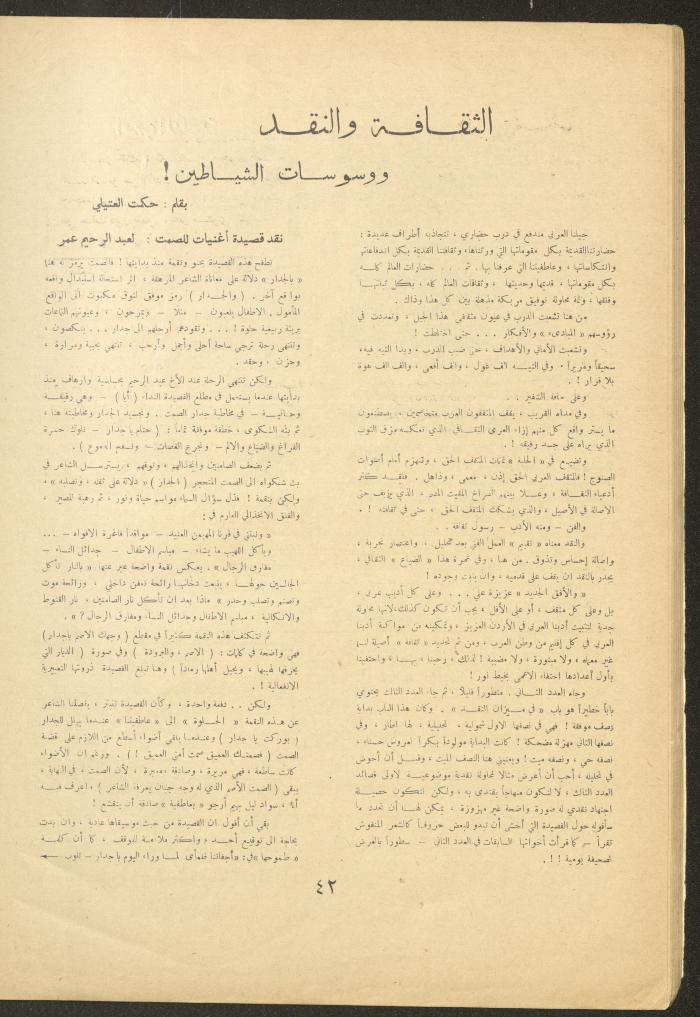 الثقافة والنقد
ووسوسات الشياطين !
بقلم : حكمت العتيلي
جيلنا العربي مندفع في درب حضاري ، تتجاذبه أطراف عديدة :
حضارتنا القديمة بكل مقوماتها التي ورثناها، وثقافتنا القديمة بكل اندفاعاتها
وانتكاساتها ، وعاطفيتنا التي عرفنا بها . ثم . . حضارات العالم كله
بكل مقوماتها ، قديمها وحديثها ، وثقافات العالم كله ، بكل
وقلقها ، وثمة محاولة توفيق مربكة مذهلة بين كل هذا وذاك .
من هنا تشعب الدرب في عيون مثقفي هذا الجيل ، وتعددت في
رؤوسهم « المبادىء » والأفكار . . . حتى اختلطت !
وتشعبت الأماني والأهداف ، حتى ضب الدرب ، وبدا التيه فيه،
سحيقاً ومريراً . وفي التيه الف غول ، والف أفعى ، والف الف هوة
بلا قرار !
وعلى حافة الشفير . .
وفي مداه القريب ، يقف المثقفون العرب متخاصمين ، يصطنعون
ما يستر واقع كل منهم إزاء العري الثقافي الذي تعكسه مزق الثوب
الذي يراه على جسد رفيقه ! .
وتضيع في « الحلبة » المثقف الحق ، وتنهزم أمام أصوات
الصنوج ! فالمثقف العربي الحق إذن ، معمي ، وذاهل . فلقد كثر
أدعياء الثقافة ، وعلا بينهم الصراخ المقيت المدمر ، الذي يزيف حتى
الاصالة في الأصيل ، والذي يشكك المثقف الحق ، حتى في ثقافته ! .
والفن – ومنه الأدب – رسول ثقافة . .
والنقد معناه « تقديم » العمل الفني بعد تحليل ، واعتصار تجربة ،
واصالة إحساس وتذوق . من هنا ، وفي غمرة هذا « الضياع » الثقافي ،
يجدر بالنقد ان يقف على قدميه ، وان يثبت وجوده !
« والأفق الجديد » عزيزة علي . . . وعلى كل أديب عربي ،
بل وعلى كل مثقف ، أو على الأقل ، يجب أن تكون كذلك، لانها محاولة
جدية لتثبيت أدبنا العربي في الأردن العزيز ، وتمكينه من مواكبة أدبنا
العربي في كل إقليم من وطن العرب ، ومن ثم تحديد « ثقافة » أصيلة لنا
غير معماه ، ولا مبتورة ، ولا مضببة ! لذلك ، رحبنا بها ، واحتفينا
بأول أعدادها احتفاء الاعمى بخيط نور !
وجاء العدد الثاني . متطوراً قليلاً ، ثم جاء العدد الثالث يحتوي
باباً خطيراً هو باب « في ميزان النقد » . وكان هذا الباب بداية
نصف موفقة ! فهي في نصفها الأول شمولية ، تحليلية ، لها اطار ، وفي
نصفها الثاني مهزلة مضحكة ! كانت البداية مولوداً بكراً لعروس حسناء ،
نصفه حي ، ونصفه ميت ! ويعنيني هنا النصف الميت ، وقبل أن أخوض
في تحليله ، أحب أن أعرض مثالا لمحاولة نقدية موضوعية لاولى قصائد
العدد الثالث ، لا لتكون منهاجاً يقتدى به ، ولكن لتكون حصيلة
اجتهاد نقدي له صورة واضحة غير مهزوزة ، يمكن لها أن تحدد ما
سأقوله حول القصيدة التي أخشى أن تبدو للبعض حروفاً كالشعر المنفوش
تقرأ – كما قرأت أخواتها السابقات في العدد الثاني – سطوراً بالعرض
لصحيفة يومية ! ! .
نقد قصيدة أغنيات للصمت : لعبد الرحيم عمر
تطفح هذه القصيدة بحنو ونقمة منذ بدايتها ! فالصمت يرمز له هنا
« بالجدار » دلالة على معاناة الشاعر المرهقة ، اثر استحالة استبدال واقعه
بواقع آخر . ( والجدار ) رمز موفق لتوق مكبوت الى الواقع
المأمول . الاطفال يلعبون – مثلا – ويمرحون ، وعيونهم التماعات
بريئة ربيعية حلوة ! . . . وتقودهم أرجلهم الى جدار . . . ينكصون ،
وتنتهي رحلة ترجي ساحة أحلى وأجمل وأرحب ، تنتهي بخيبة ومرارة ،
وحزن ، وحقد .
ولكن تنتهي الرحلة عند الأخ عبد الرحيم بحساسية وارهاف منذ
بدايتها عندما يستعمل في مطلع القصيدة النداء ( أيا ) – وهي رقيقة
وحانية – في مخاطبة جدار الصمت . وتجسيد الجدار ومخاطبته هنا ،
ثم بثه الشكوى ، خطفة موفقة تماماً : ( حتام يا جدار – نلوك حسرة
الفراغ والضياع والالم – ونجرع الغصات – الدموع ) .
ثم بضعف الصامتين وانخذالهم ، وتوقهم ، يسترسل الشاعر في
بث شكواه الى الصمت المتحجر ( الجدار ) « دلالة على ثقله ، وتصلبه » ،
ولكن بنقمة ! فذل سؤال السماء مواسم حياة ونور ، ثم رهبة المصير ،
والقلق الانخذالي العارم في :
« ونبتني في قرنا المهيمن العنيد – مواقداً فاغرة الافواه – ...
ويأكل اللهيب ما يشاء – مباسم الاطفال – جدائل النساء –
مفارق الرجال » . يعكس نقمة واضحة عبر عنها « بالنار تأكل
الجالسين حولها ، ينبعث دخانها رائحة تعفن داخلي ، ورائحة موت
وتصنم وتصلب وحذر » ماذا بعد ان تأكل نار الصامتين ، نار القنوط
والاتكالية ، مباسم الاطفال وجدائل النساء ومفارق الرجال ؟ » .
ثم تتكثف هذه النقمة كثيراً في مقطع ( وجهك الاصم يا جدار )
فهي واضحة في كلمات : ( الاصم ، والبرودة ) وفي صورة ( الديار التي
يحرقها لهيبها ، ويحيل أهلها رماداً ) وهنا تبلغ القصيدة ذروتها التعبيرية
الانفعالية ! .
ولكن . . دفعة واحدة ، وكأن القصيدة تندثر ، يفصلنا الشاعر
عن هذه النقمة « الحلوة » الى « عاطفيتنا » عندما يبتهل للجدار
( بوركت يا جدار ) وعندما يلقي أضواء أسطع من اللازم على قضية
الصمت ( فصمتك العميق صمت أمتي العميق ! ) . ورغم ان الأضواء
كانت ساطعة ، فهي مريرة ، وصادقة ومعبرة ، لأن الصمت ، في النهاية ،
يبقى ( الصمت الأصم الذي له وجه جنان يعرفه الشاعر ) واعرف منه
أنه ، سواد ليل بهيم أرجو « بعاطفية » صادقة أن ينقشع !
بقي أن أقول ان القصيدة من حيث موسيقاها عادية ، وان بدت
بحاجة الى توقيع أحد وأكثر ملاءمة للموقف ، كما أن كلمة
« طموحها » في: « أجفاننا ظمأى لما وراء اليوم يا جدار – للوب ←
٤٢